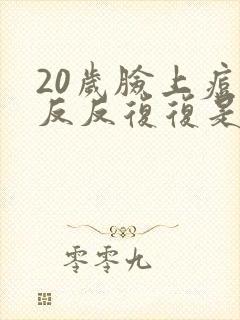 20歲臉上痘
反反復復是
零零九